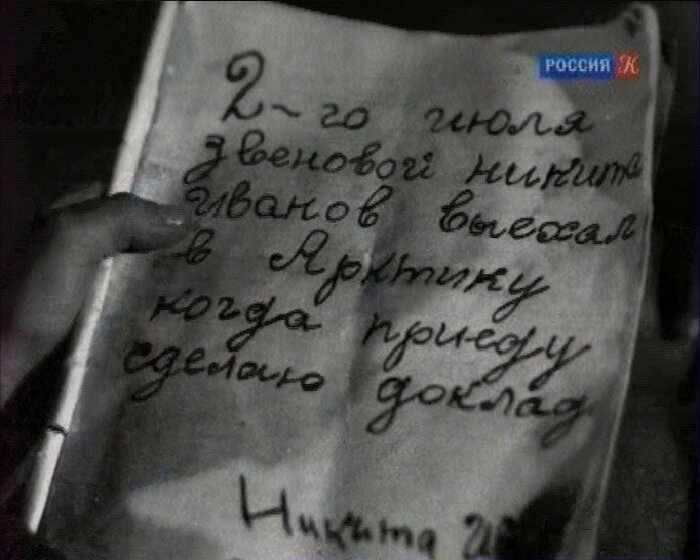 РОССИЯ К
2-го июля
звеновой никита
Иванов выехал
в Арктику
когда приеду
сделаю доклад
Никита